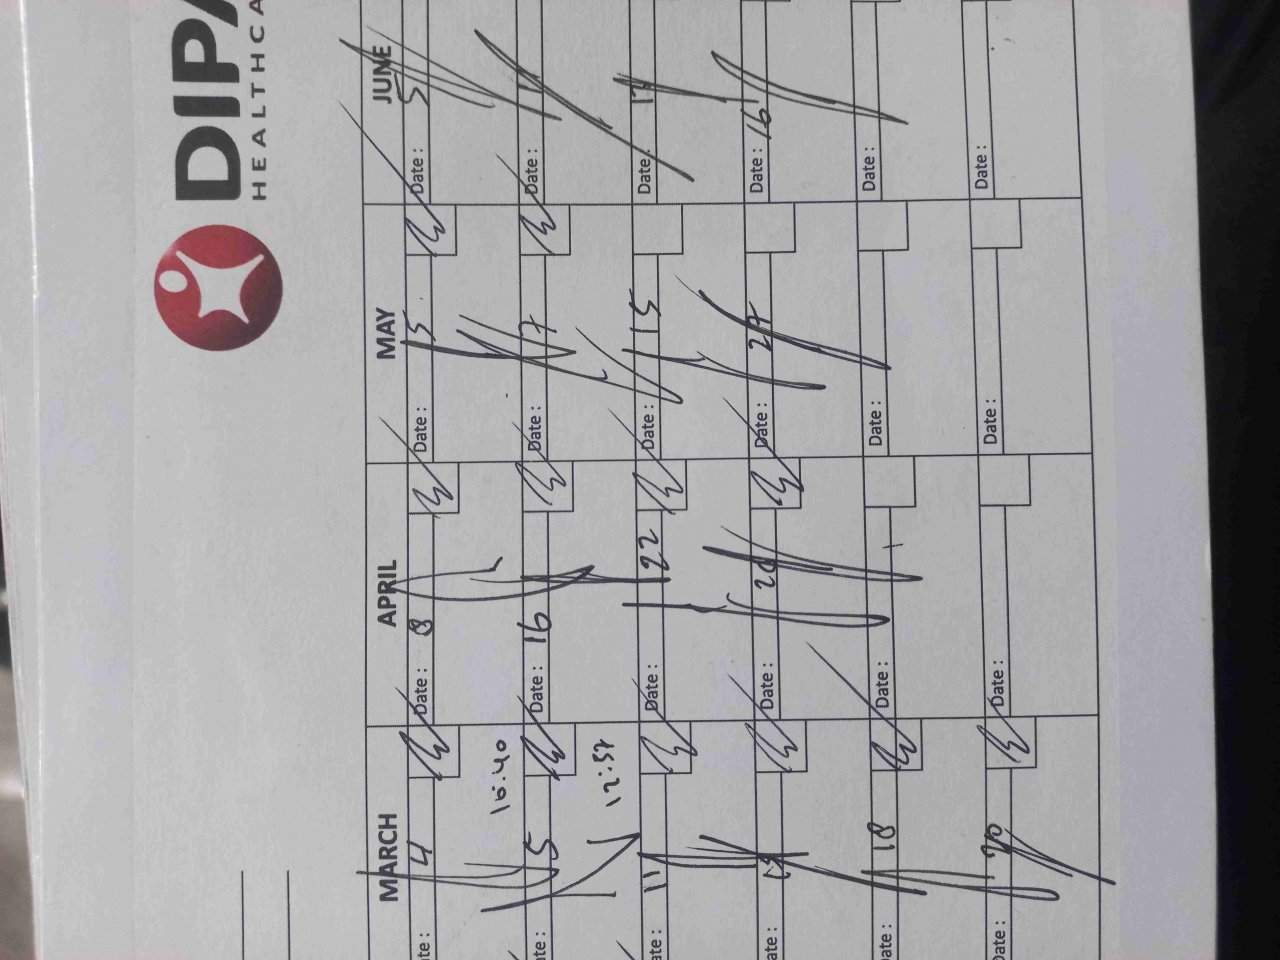 DIPA
HEALTHCA
MARCH APRIL MAY JUNE
ate : 4 Date : 8 Date : 5 Date : 5
16:40
ate : 5 Date : 16 Date : 7 Date :
12:57
ate : 11 Date : 22 Date : 15 Date : 12
ate : Date : Date : 27 Date : 16
ate : 18 Date : Date : Date :
ate : 20 Date : Date : Date :